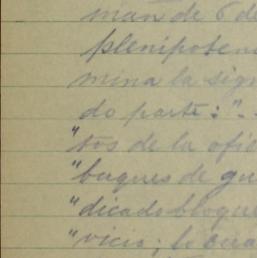 man de 6 de
plenipoten
mina la sign
do parte: "..
"tos de la ofic
"buques de gu
"dicado bloque
"vicio; lo cua